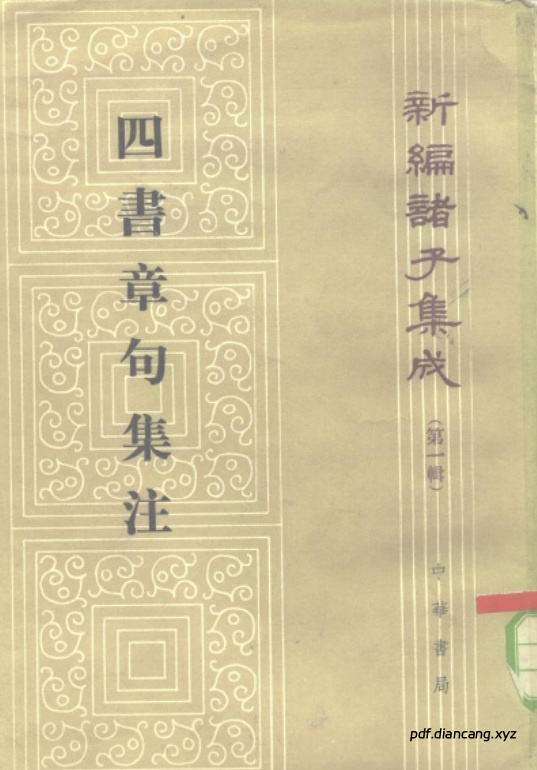 新編諸子集成
(第一輯)
四書章句集注
中華書局
pdf.diancang.xyz